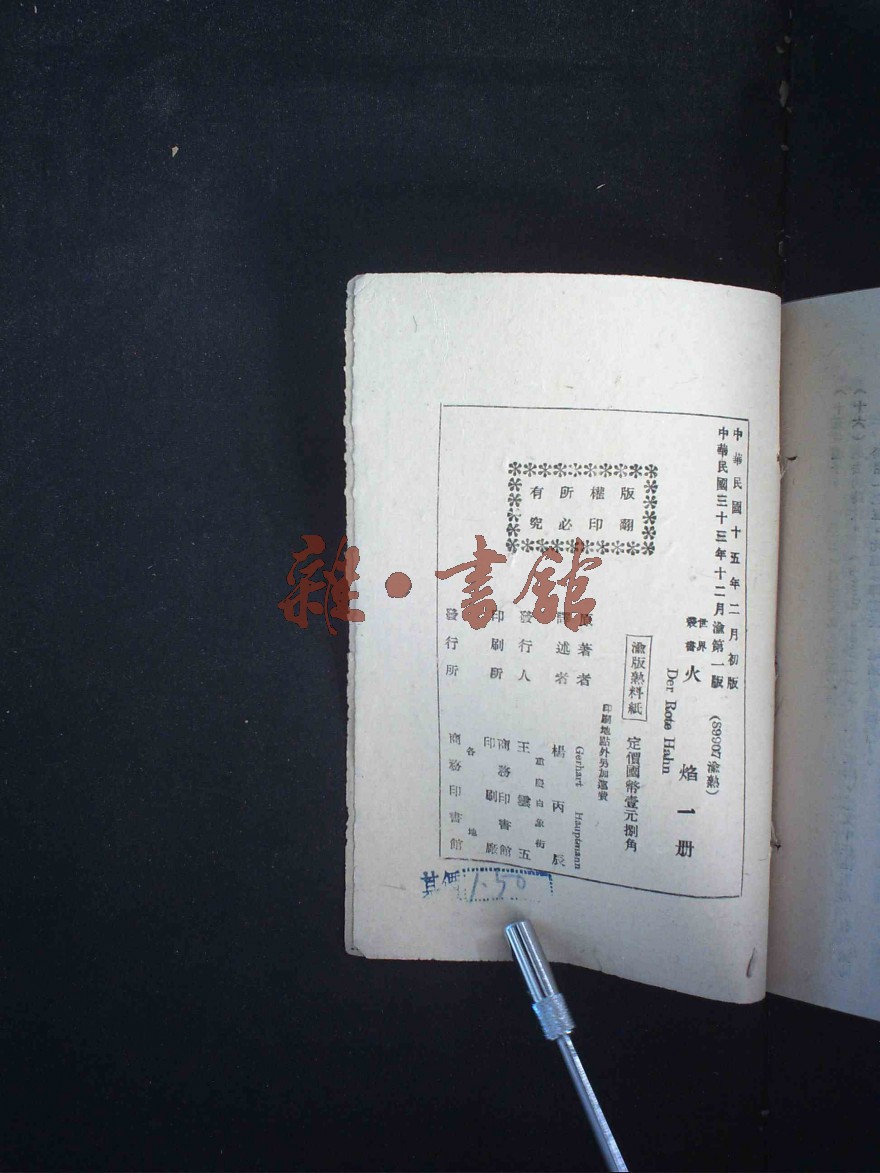 中華民國十五年二月初版
中華民國三十三年十二月渝第一版
(89907渝熱)
世界叢書 火焰 一册
Der Rote Hahn
渝版熱料紙 定價國幣壹元捌角
印刷地點外另加滙費
版權所有
翻印必究
原著者 Gerhart Hauptmann
譯述者 楊丙辰
發行人 王雲五
重慶白象街
印刷所 商務印書館印刷廠
發行所 各地商務印書館
其價 1.50
雜·書館